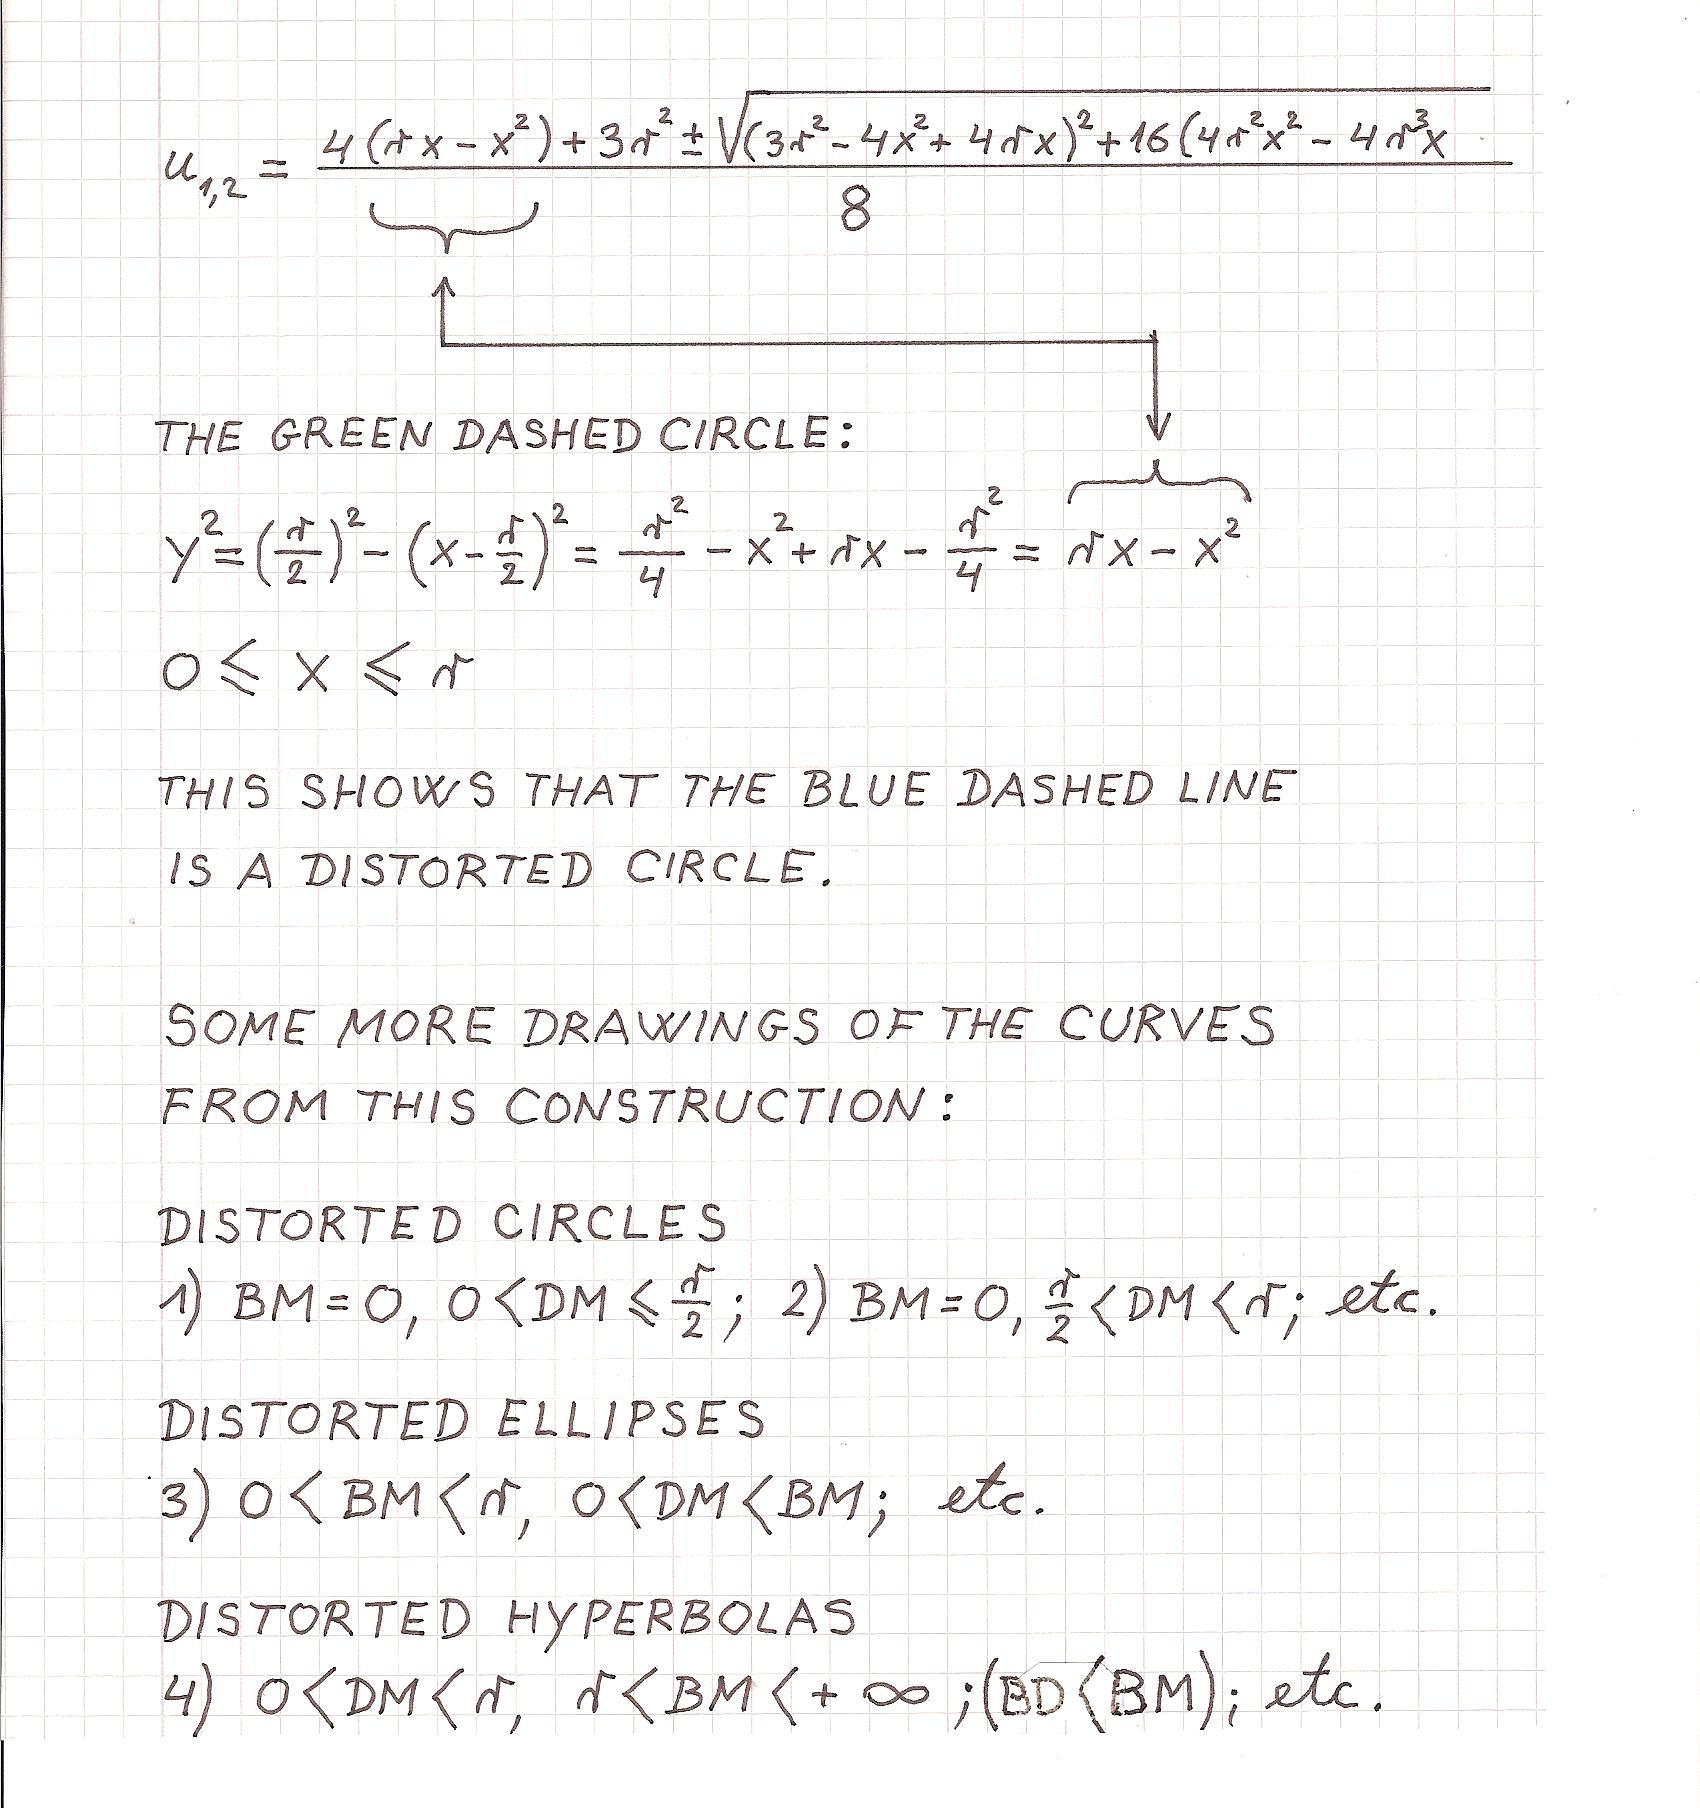 u₁,₂ = (4(rx − x²) + 3r² ± √((3r² − 4x² + 4rx)² + 16(4r²x² − 4r³x)) / 8
THE GREEN DASHED CIRCLE:
y² = (r/2)² − (x − r/2)² = r²/4 − x² + rx − r²/4 = rx − x²
0 ⩽ x ⩽ r
THIS SHOWS THAT THE BLUE DASHED LINE
IS A DISTORTED CIRCLE.
SOME MORE DRAWINGS OF THE CURVES
FROM THIS CONSTRUCTION:
DISTORTED CIRCLES
1) BM = 0, 0 < DM ⩽ r/2; 2) BM = 0, r/2 < DM < r; etc.
DISTORTED ELLIPSES
3) 0 < BM < r, 0 < DM < BM; etc.
DISTORTED HYPERBOLAS
4) 0 < DM < r, r < BM < + ∞ ; (BD < BM); etc.